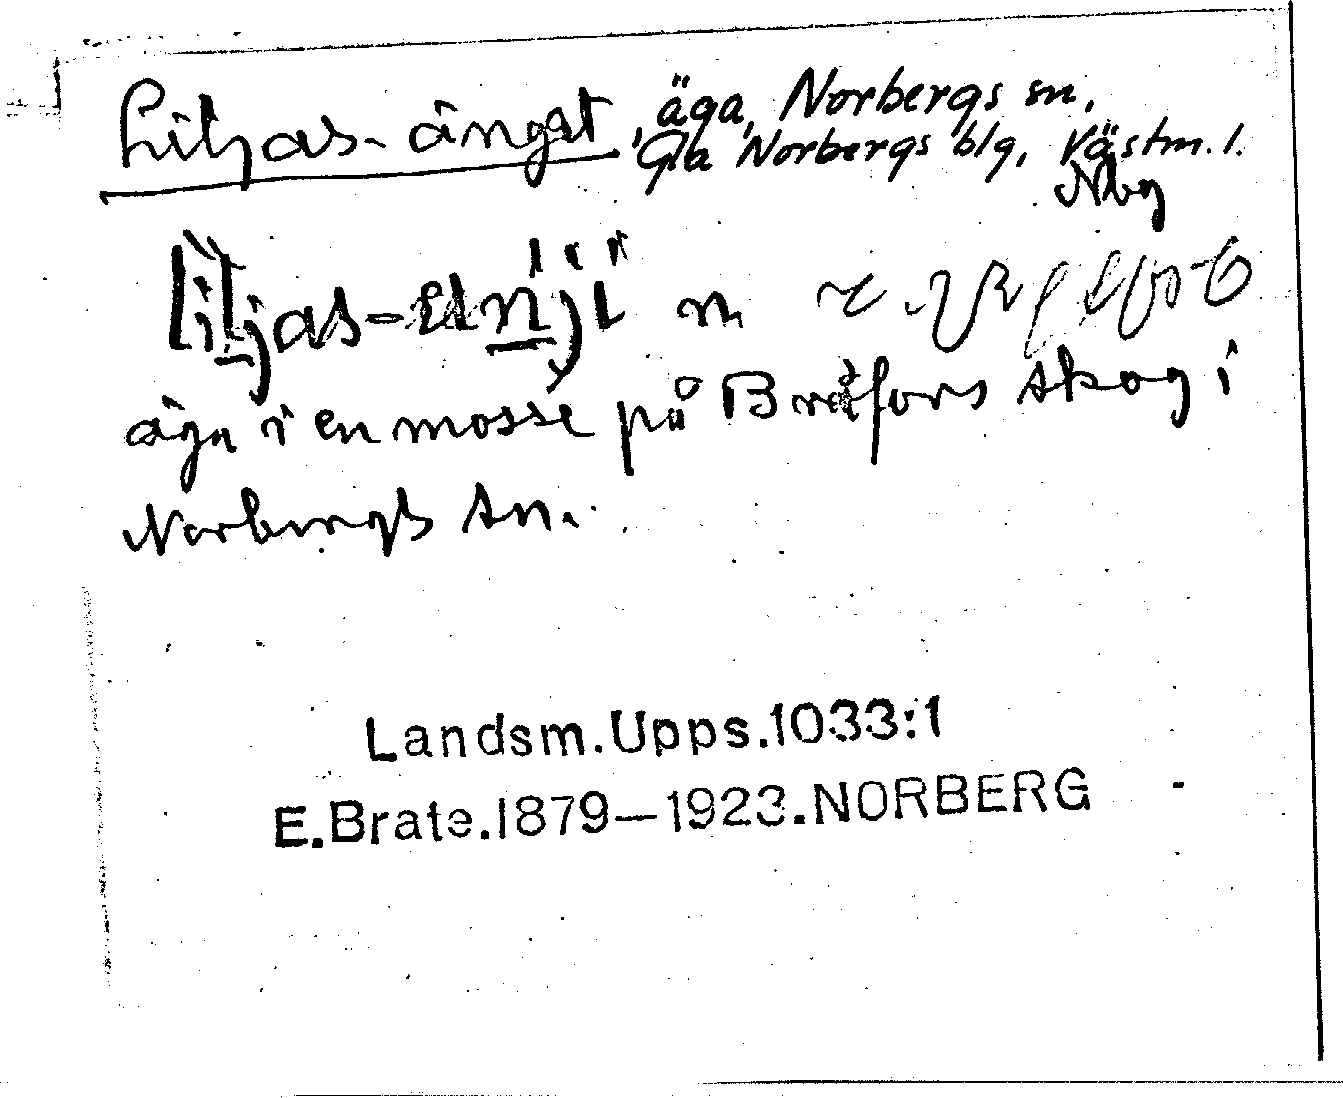 Liljas-änget, äga, Norbergs sn,
Gla Norbergs blg, Västm. l.
Nbg
äga i en mosse på Bråfors skog i
Norbergs sn.
Landsm.Upps.1033:1
E.Brate.1879—1923.NORBERG